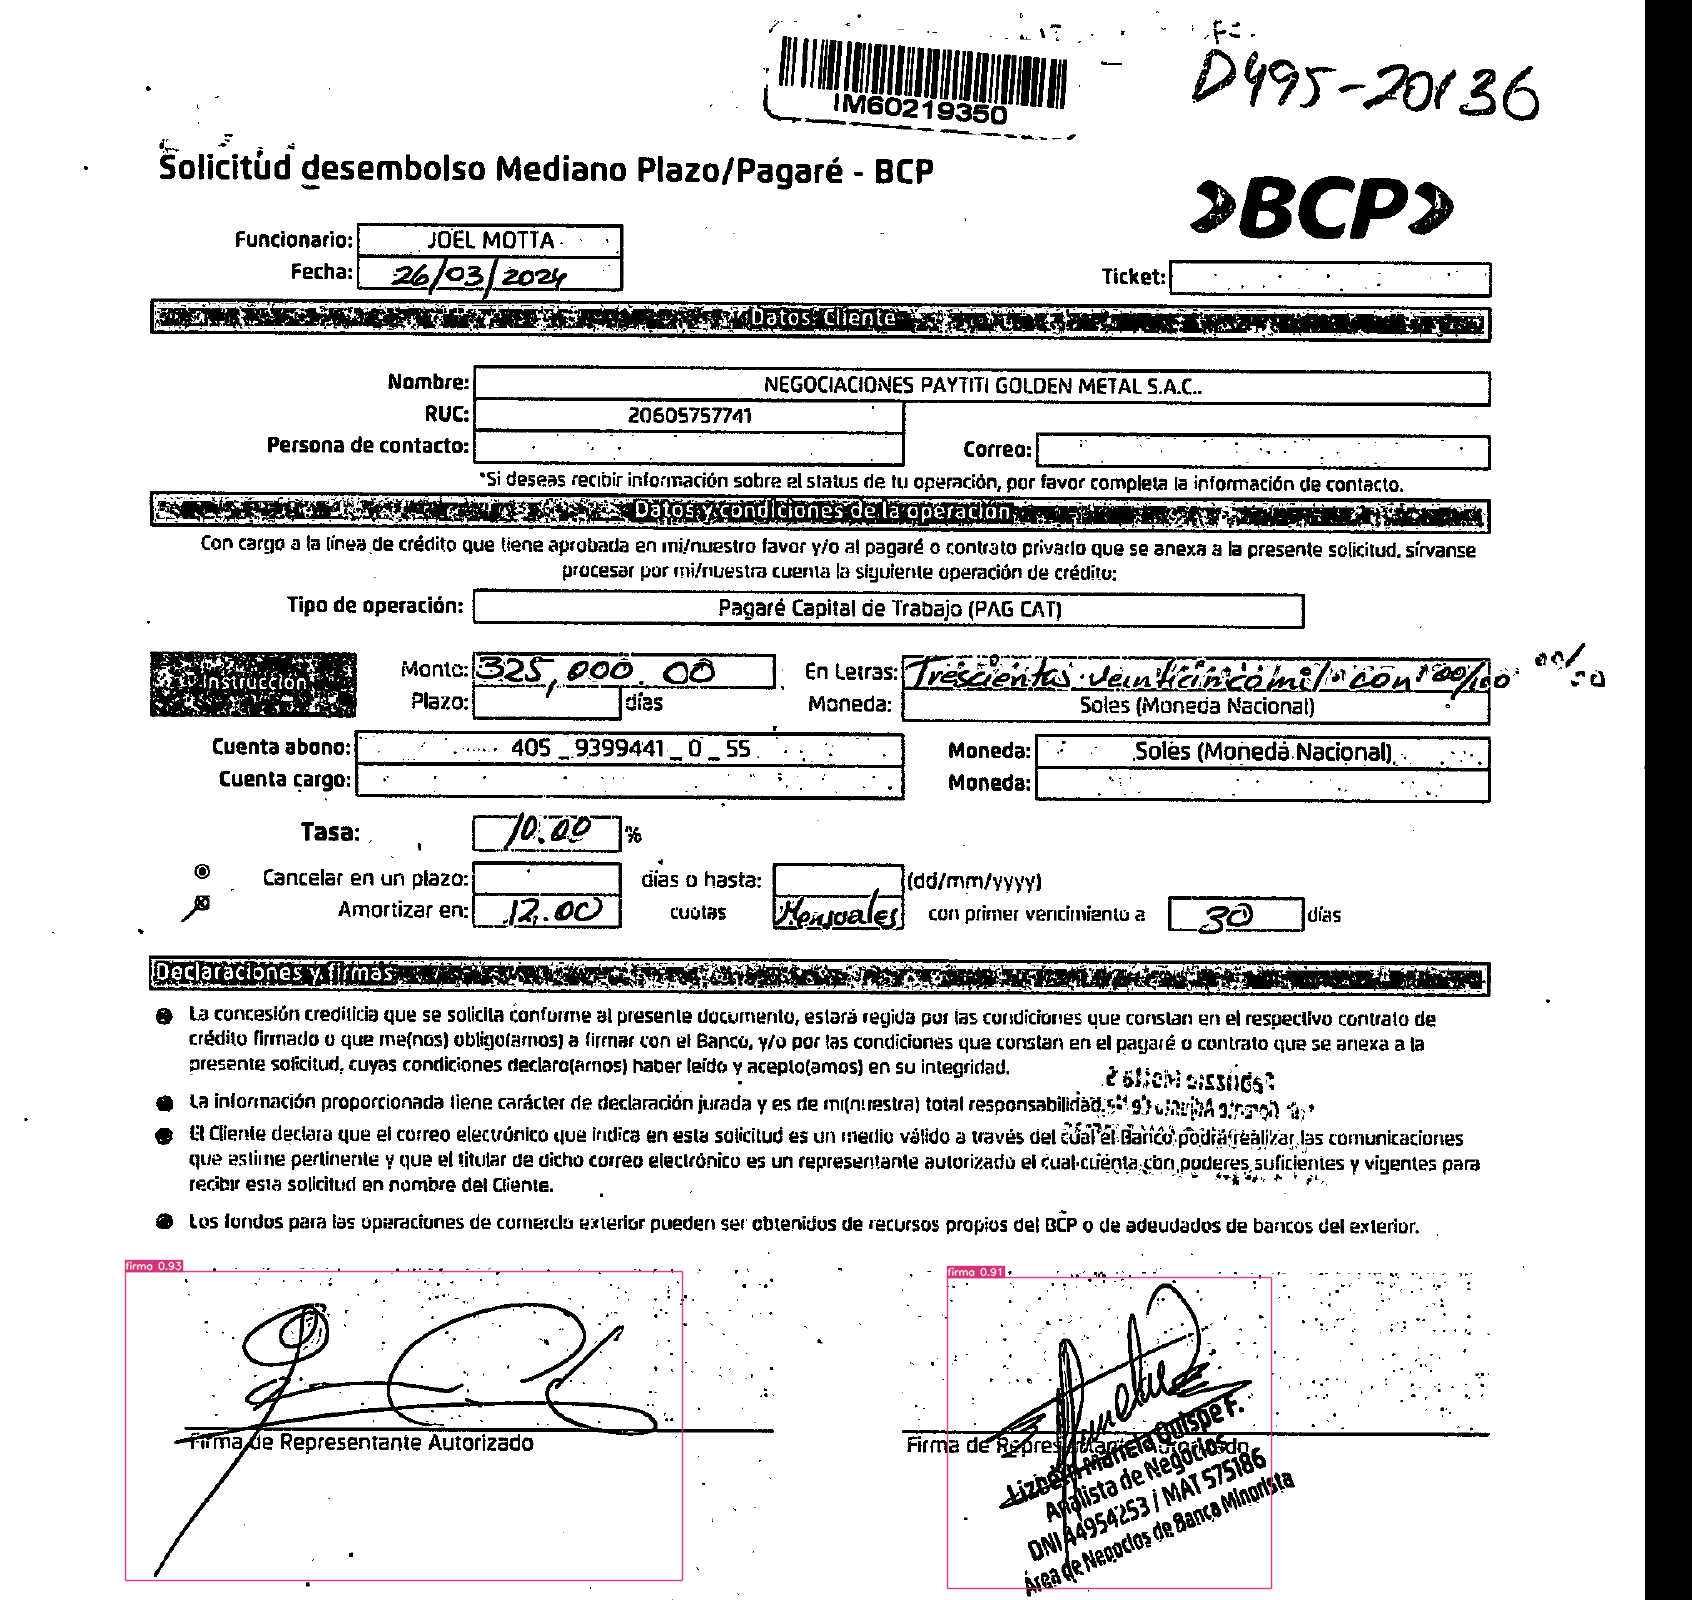 D495-20136
IM60219350
Solicitud desembolso Mediano Plazo/Pagaré - BCP
BCP
Funcionario: JOEL MOTTA
Fecha: 26/03/2024
Ticket:
Datos Cliente
Nombre: NEGOCIACIONES PAYTITI GOLDEN METAL S.A.C..
RUC: 20605757741
Persona de contacto: Correo:
*Si deseas recibir información sobre el status de tu operación, por favor completa la información de contacto.
Datos y condiciones de la operación
Con cargo a la línea de crédito que tiene aprobada en mi/nuestro favor y/o al pagaré o contrato privado que se anexa a la presente solicitud, sírvanse
procesar por mi/nuestra cuenta la siguiente operación de crédito:
Tipo de operación: Pagaré Capital de Trabajo (PAG CAT)
Instrucción
Monto: 325,000.00 En Letras: Trescientos veinticinco mil con 00/100
Plazo: días Moneda: Soles (Moneda Nacional)
Cuenta abono: 405 _ 9399441 _ 0 _ 55 Moneda: Soles (Moneda Nacional)
Cuenta cargo: Moneda:
Tasa: 10.00 %
Cancelar en un plazo: días o hasta: (dd/mm/yyyy)
Amortizar en: 12.00 cuotas Mensuales con primer vencimiento a 30 días
Declaraciones y firmas
La concesión crediticia que se solicita conforme al presente documento, estará regida por las condiciones que constan en el respectivo contrato de
crédito firmado o que me(nos) obligo(amos) a firmar con el Banco, y/o por las condiciones que constan en el pagaré o contrato que se anexa a la
presente solicitud, cuyas condiciones declaro(amos) haber leído y acepto(amos) en su integridad.
La información proporcionada tiene carácter de declaración jurada y es de mi(nuestra) total responsabilidad.
El Cliente declara que el correo electrónico que indica en esta solicitud es un medio válido a través del cual el Banco podrá realizar las comunicaciones
que estime pertinente y que el titular de dicho correo electrónico es un representante autorizado el cual cuenta con poderes suficientes y vigentes para
recibir esta solicitud en nombre del Cliente.
Los fondos para las operaciones de comercio exterior pueden ser obtenidos de recursos propios del BCP o de adeudados de bancos del exterior.
firma 0.93
firma 0.91
Firma de Representante Autorizado
Firma de Representante
Lizbeth Mariela Quispe F.
Analista de Negocios
DNI 44954253 / MAT S75186
Área de Negocios de Banca Minorista